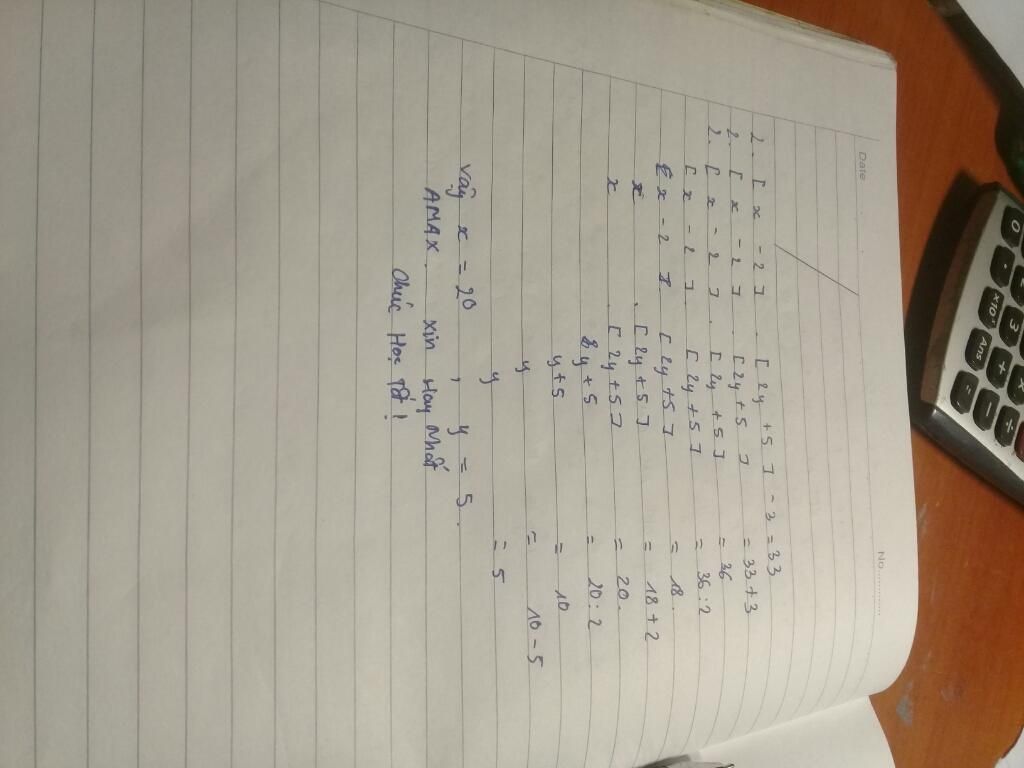 Date No.
2. [ x - 2 ] . [ 2y + 5 ] - 3 = 33
2. [ x - 2 ] . [ 2y + 5 ] = 33 + 3
2. [ x - 2 ] . [ 2y + 5 ] = 36
[ x - 2 ] . [ 2y + 5 ] = 36 : 2
[ x - 2 ] . [ 2y + 5 ] = 18
x . [ 2y + 5 ] = 18 + 2
x . [ 2y + 5 ] = 20.
2y + 5 = 20 : 2
y + 5 = 10
y = 10 - 5
y = 5
Vậy x = 20 , y = 5.
AMAX. xin Hay Nhất
Chúc Học Tốt !
0 . x10^x Ans =
3 + -
x ÷